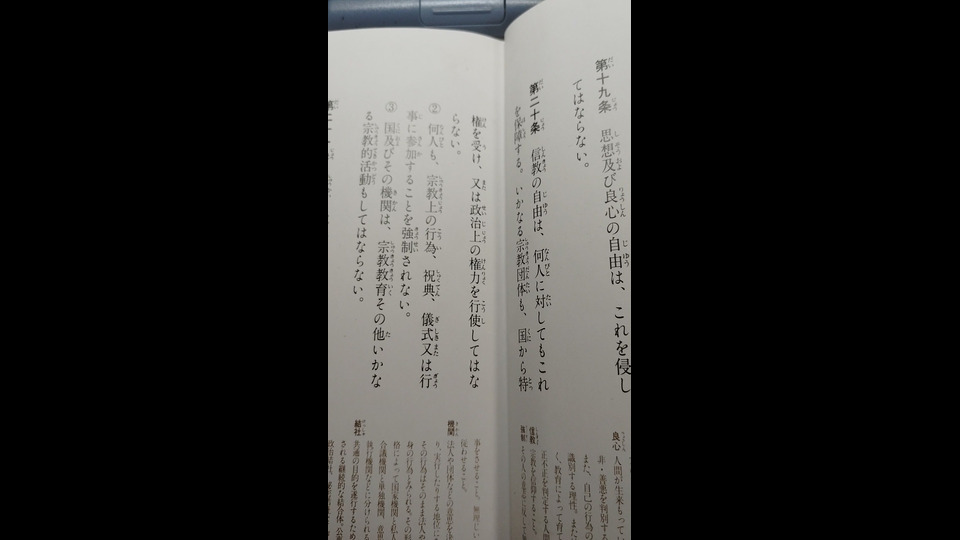 第十九条　思想及び良心の自由は、これを侵し
てはならない。
第二十条　信教の自由は、何人に対してもこれ
を保障する。いかなる宗教団体も、国から特
権を受け、又は政治上の権力を行使してはな
らない。
② 何人も、宗教上の行為、祝典、儀式又は行
事に参加することを強制されない。
③ 国及びその機関は、宗教教育その他いかな
る宗教的活動もしてはならない。
良心
人間が生来もってい
非・善悪を判別する
また、自己の行為の
識別する理性。また
く、教育によって育て
正不正を判定する人間
信教
宗教を信仰すること。
保障
機関
法人や団体などの意思を決
り、実行したりする地位に
その行為はそのまま法人や
身の行為とみられる。その
格によって国家機関と私人
合議機関と単独機関、意思
執行機関などに分けられる
結社
共通の目的を遂行するため
される継続的な結合体。